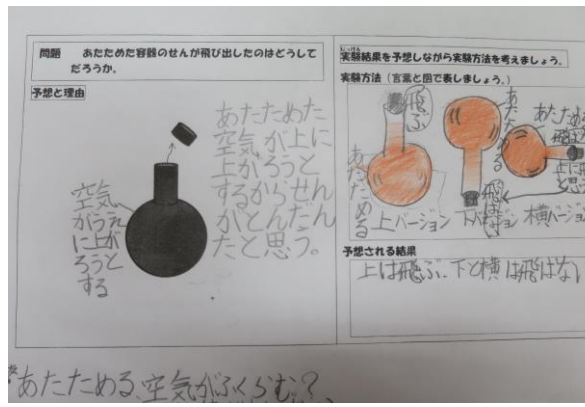 問題 あたためた容器のせんが飛び出したのはどうして
だろうか。
予想と理由
あたためた
空気が上に
上がろうと
するからせん
がとんだん
だと思う。
空気
がうえ
に上が
ろうと
する
実験結果を予想しながら実験方法を考えましょう。
実験方法（言葉と図で表しましょう。）
飛ぶ
あたためる
上バージョン
あたためる
飛ばない
下バージョン
あたため
横バージョン
予想される結果
上は飛ぶ、下と横は飛ばない
あたためる、空気がふくらむ？